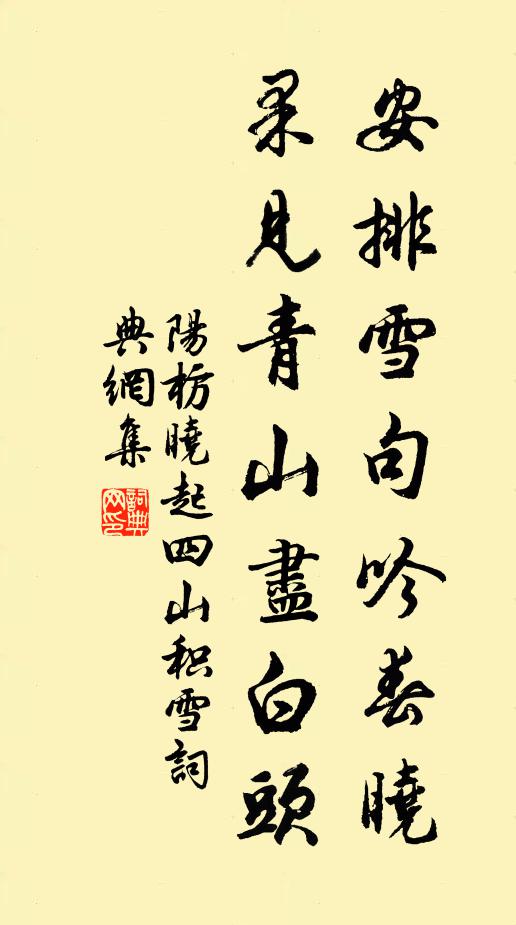 安排雪句吟春曉
果見青山盡白頭
陽枋曉起四山积雪詞
典網集
詞典网印